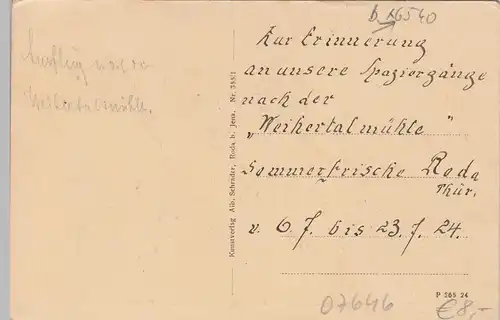 b 16540
Zur Erinnerung
an unsere Spaziergänge
nach der
„Weihertalmühle"
Sommerfrische Roda
Thür.
v. 6 7. bis 23. 7. 24.
Ausflug nach
Weihertalmühle.
Kunstverlag Alb. Schrader, Roda b. Jena. Nr. 355/1
P 365 24
07646
€8,-